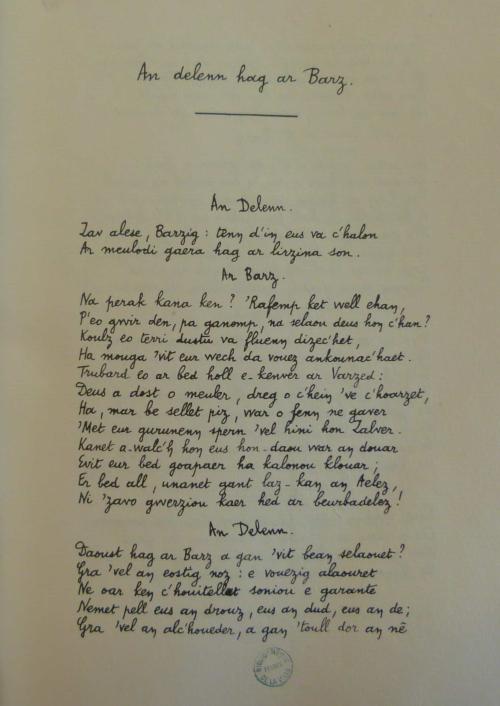 An delenn hag ar Barz.
An Delenn.
Zav alese, Barzig : tenn d'in eus va c'halon
Ar meulodi gaera hag ar lirzina son.
Ar Barz.
Na perak kana ken ? 'Rafemp ket well ehan,
P'eo gwir den, pa ganomp, na selaou deus hon c'han ?
Koulz eo terri dustu va fluenn dizec'het,
Ha mouga 'vit eur wech da vouez ankounac'haet.
Trubard eo ar bed holl e-kenver ar Varzed :
Deus a dost o meuler, dreg o c'hein 've c'hoarzet,
Ha, mar be sellet piz, war o fenn ne gaver
'Met eur gurunenn spern 'vel hini hon Zalver.
Kanet a-walc'h hon eus hon-daou war an douar
Evit eur bed goapaer ha kalonou klouar ;
Er bed all, unanet gant laz-kan an Aelez,
Ni 'zavo gwerziou kaer hed ar beurbadelez !
An Delenn.
Daoust hag ar Barz a gan 'vit bean selaouet ?
Gra 'vel an eostig noz : e vouezig alaouret
Ne oar ken c'houitellat soniou e garante
Nemet pell eus an drouz, eus an dud, eus an de ;
Gra 'vel an alc'houeder, a gan 'toull dor an nê